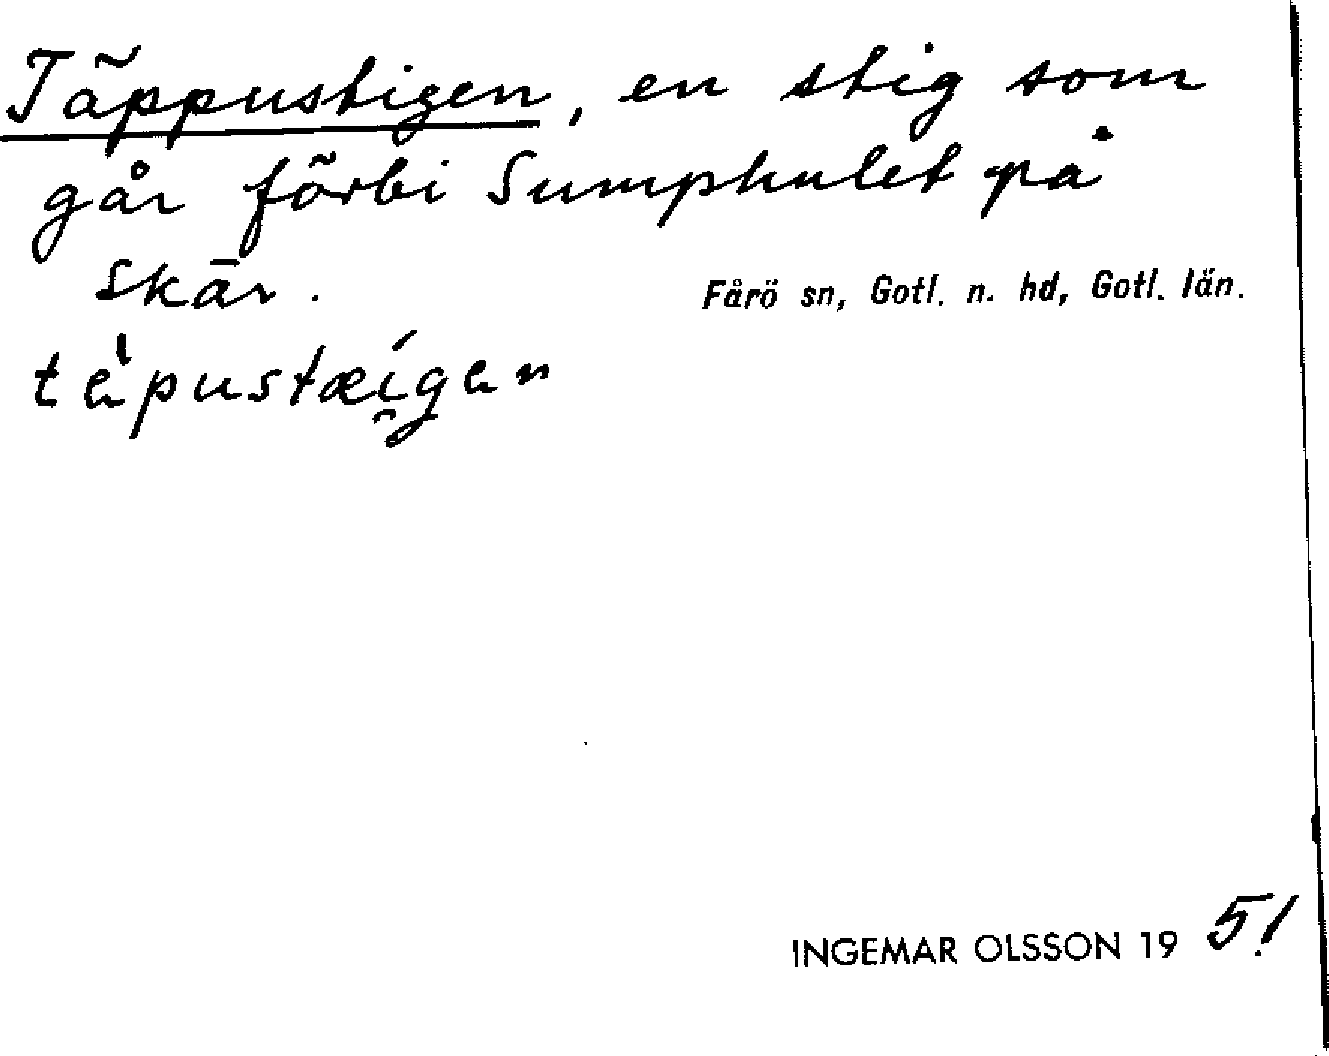 Täppustigen, en stig som
går förbi Sumphulet på
skär.
Fårö sn, Gotl. n. hd, Gotl. län.
INGEMAR OLSSON 1951